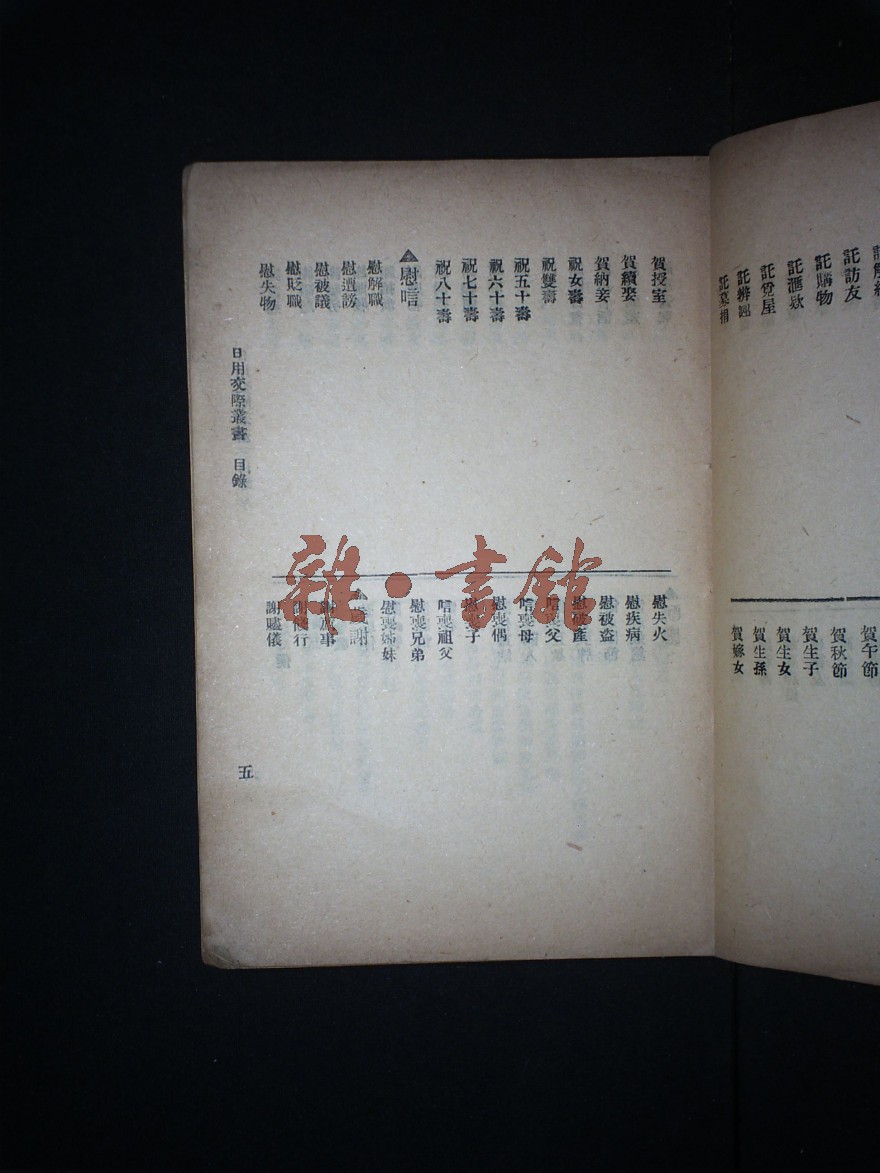 託訪友
託購物
託滙欵
託覓屋
託募捐
賀午節
賀秋節
賀生子
賀生女
賀生孫
賀嫁女
賀授室
賀續娶
賀納妾
祝女壽
祝雙壽
祝五十壽
祝六十壽
祝七十壽
祝八十壽
慰唁
慰解職
慰遭謗
慰被議
慰貶職
慰失物
慰失火
慰疾病
慰被盜
慰破產
唁喪父
唁喪母
慰喪偶
慰喪子
唁喪祖父
慰喪兄弟
慰喪姊妹
謝贐儀
日用交際叢書 目錄
五
雜·書館